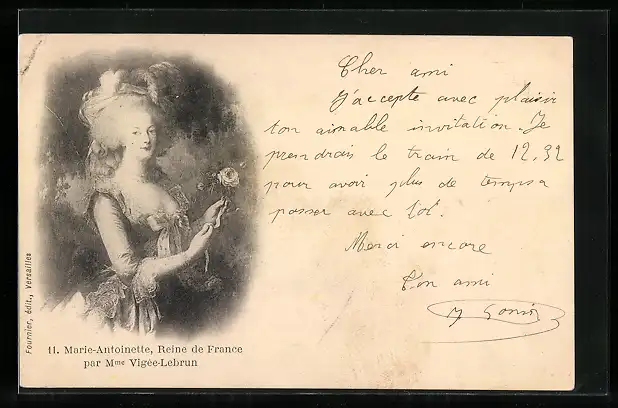 Cher ami
J'accepte avec plaisir
ton aimable invitation. Je
prendrais le train de 12,32
pour avoir plus de temps a
passer avec toi.
Merci encore
Ton ami
Fournier, édit., Versailles
11. Marie-Antoinette, Reine de France
par Mme Vigée-Lebrun